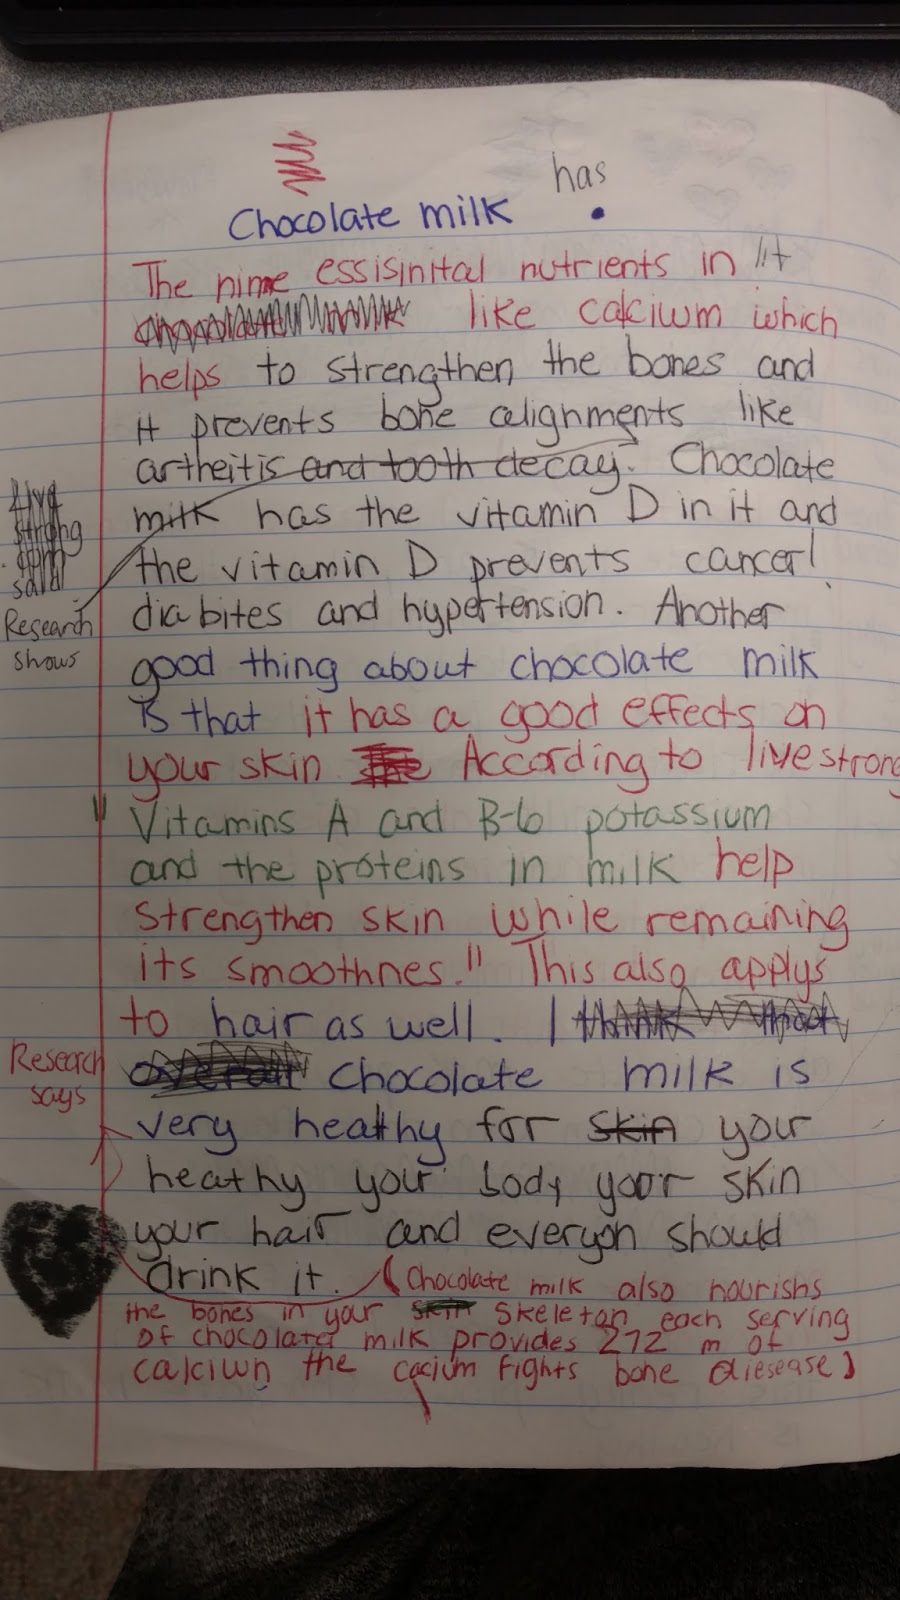 has
Chocolate milk .
The nime essisinital nutrients in it
like calcium which
helps to strengthen the bones and
it prevents bone alignments like
artheitis and tooth decay. Chocolate
milk has the vitamin D in it and
the vitamin D prevents cancer!
diabites and hypertension. Another
good thing about chocolate milk
is that it has a good effects on
your skin According to livestrong
"Vitamins A and B-6 potassium
and the proteins in milk help
strengthen skin while remaining
its smoothnes." This also applys
to hair as well. I think that
overall chocolate milk is
very heathy for skin your
heathy your body your skin
your hair and everyon should
drink it. (Chocolate milk also nourishs
the bones in your skin skeleton each serving
of chocolate milk provides 272 m of
calciwn the cacium fights bone diesease)
strong
said
Research
shows
Research
says